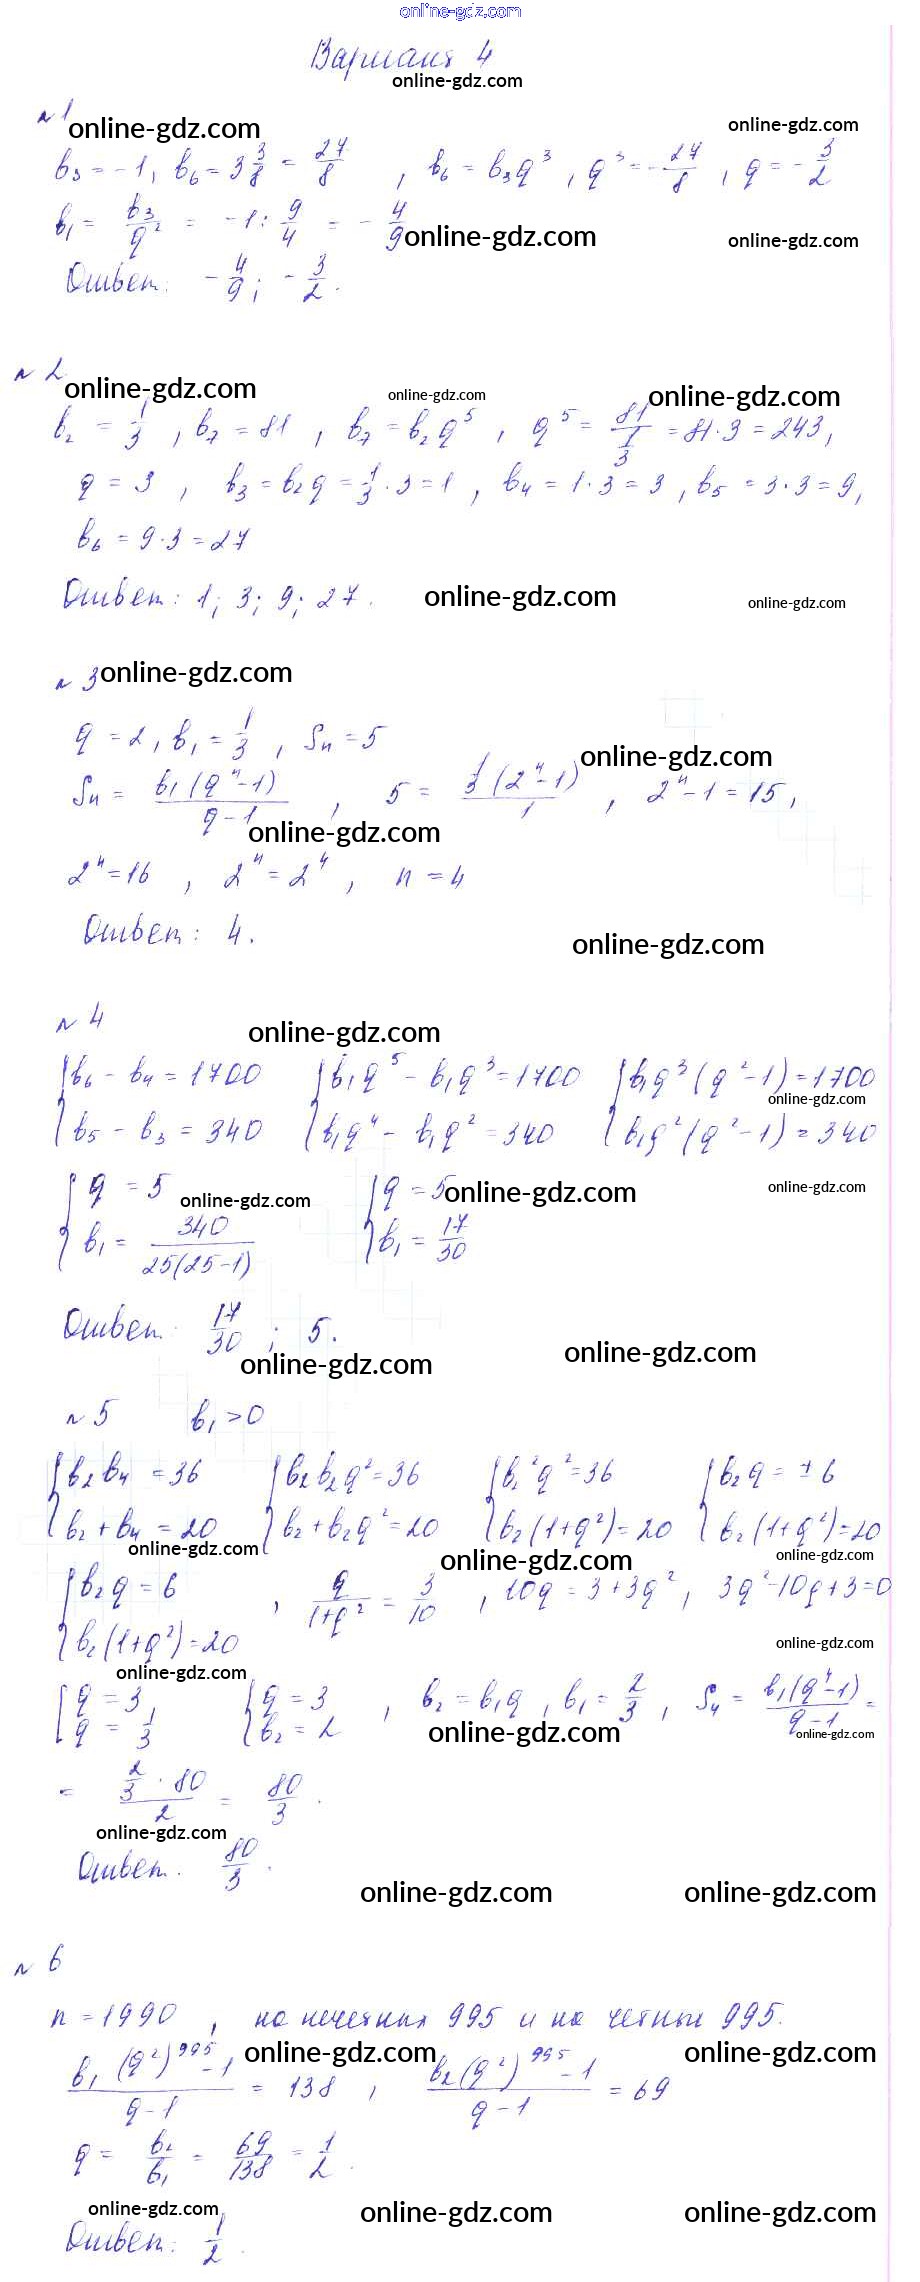 online-gdz.com
Вариант 4
online-gdz.com
№ 1
online-gdz.com online-gdz.com
b₃ = -1, b₆ = 3 3/8 = 27/8 , b₆ = b₃q³ , q³ = -27/8 , q = -3/2
b₁ = b₃/q² = -1 : 9/4 = -4/9 online-gdz.com online-gdz.com
Ответ: -4/9 ; -3/2 .
№ 2
online-gdz.com online-gdz.com online-gdz.com
b₂ = 1/3 , b₇ = 81 , b₇ = b₂q⁵ , q⁵ = 81/(1/3) = 81·3 = 243,
q = 3 , b₃ = b₂q = 1/3 · 3 = 1 , b₄ = 1·3 = 3 , b₅ = 3·3 = 9,
b₆ = 9·3 = 27
Ответ: 1; 3; 9; 27. online-gdz.com online-gdz.com
№ 3 online-gdz.com
q = 2 , b₁ = 1/3 , Sₙ = 5
online-gdz.com
Sₙ = b₁(qⁿ-1)/(q-1) , 5 = 1/3(2ⁿ-1)/1 , 2ⁿ-1 = 15,
online-gdz.com
2ⁿ = 16 , 2ⁿ = 2⁴ , n = 4
Ответ: 4. online-gdz.com
№ 4
online-gdz.com
{b₆ - b₄ = 1700 {b₁q⁵ - b₁q³ = 1700 {b₁q³(q²-1) = 1700
online-gdz.com
{b₅ - b₃ = 340 {b₁q⁴ - b₁q² = 340 {b₁q²(q²-1) = 340
{q = 5 online-gdz.com {q = 5 online-gdz.com online-gdz.com
{b₁ = 340/25(25-1) {b₁ = 17/30
Ответ: 17/30 ; 5.
online-gdz.com online-gdz.com
№ 5 b₁ > 0
{b₂b₄ = 36 {b₂b₂q² = 36 {b₂²q² = 36 {b₂q = ±6
{b₂ + b₄ = 20 {b₂ + b₂q² = 20 {b₂(1+q²) = 20 {b₂(1+q²) = 20
online-gdz.com online-gdz.com online-gdz.com
{b₂q = 6 , q/(1+q²) = 3/10 , 10q = 3+3q² , 3q²-10q+3=0
{b₂(1+q²) = 20 online-gdz.com
online-gdz.com
[q = 3, {q = 3 , b₂ = b₁q , b₁ = 2/3 , S₄ = b₁(q⁴-1)/(q-1) =
[q = 1/3 {b₂ = 2 online-gdz.com online-gdz.com
= (2/3 · 80)/2 = 80/3 .
online-gdz.com
Ответ. 80/3 .
online-gdz.com online-gdz.com
№ 6
n = 1990 , на нечетных 995 и на четные 995.
online-gdz.com online-gdz.com
b₁(q²)⁹⁹⁵-1/(q-1) = 138 , b₂(q²)⁹⁹⁵-1/(q-1) = 69
q = b₂/b₁ = 69/138 = 1/2 .
online-gdz.com online-gdz.com online-gdz.com
Ответ: 1/2 .